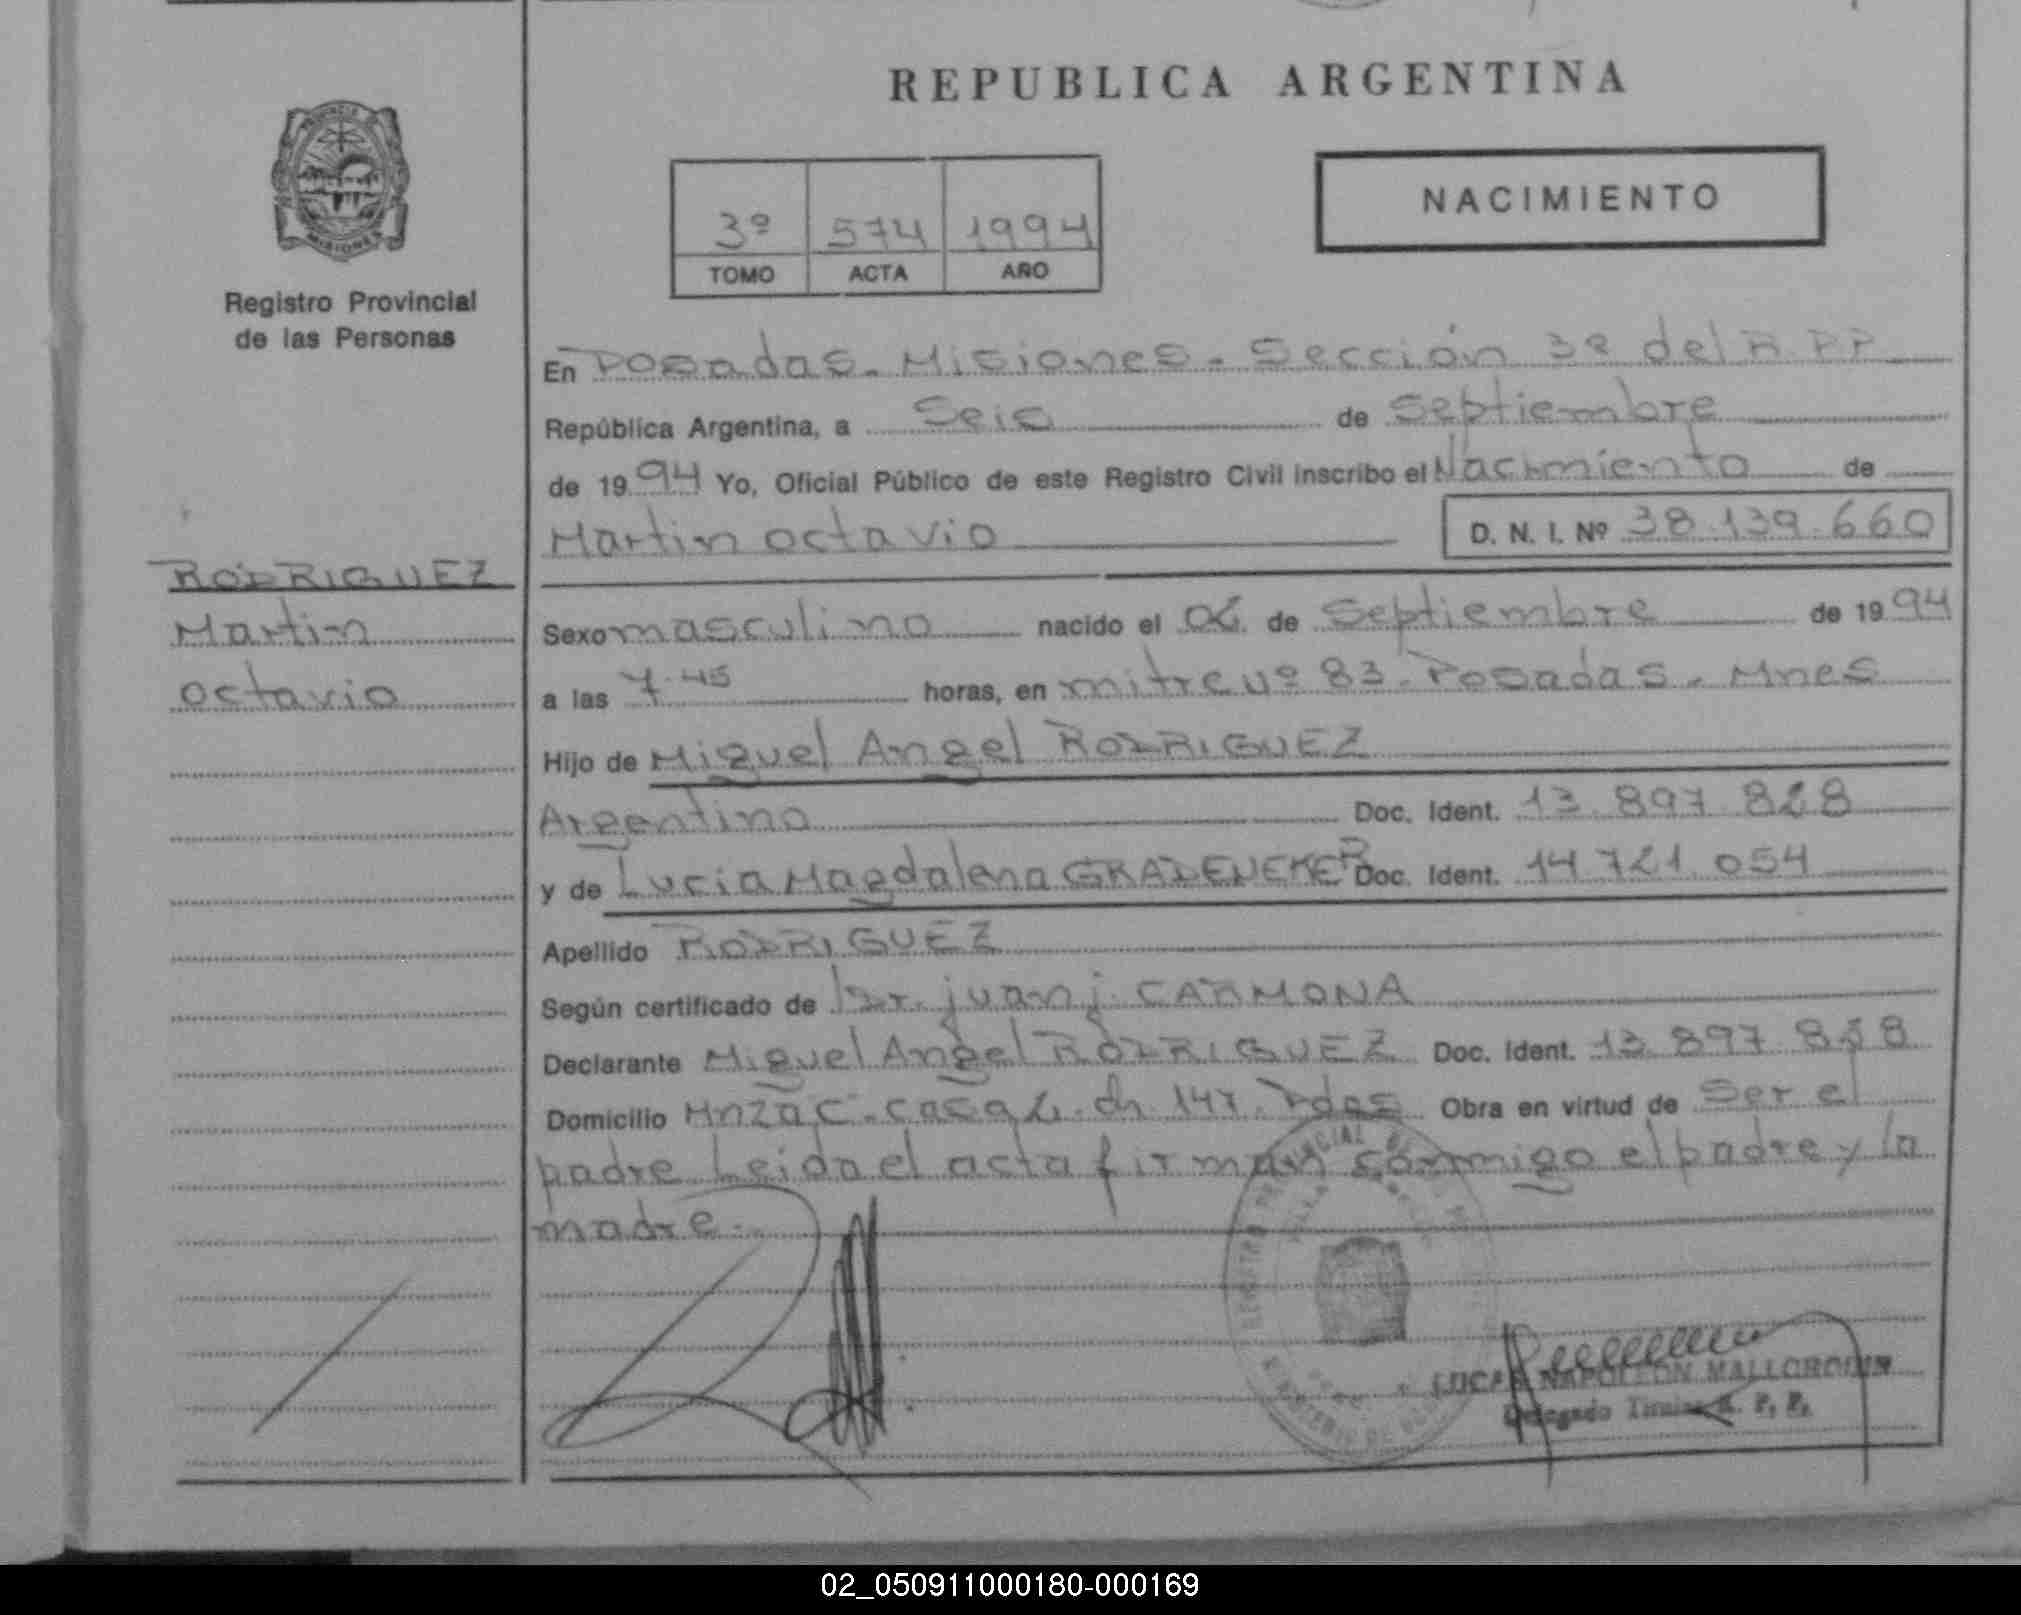 REPUBLICA ARGENTINA
3º 574 1994
TOMO ACTA AÑO
NACIMIENTO
Registro Provincial
de las Personas
En Posadas. Misiones. Sección 3ª del R.P.P
República Argentina, a Seis de Septiembre
de 1994 Yo, Oficial Público de este Registro Civil inscribo el Nacimiento de
Martin octavio D. N. I. Nº 38.139.660
RODRIGUEZ
Martin
octavio
Sexo masculino nacido el 06 de Septiembre de 1994
a las 7.45 horas, en mitre nº 83. Posadas. Mnes
Hijo de Miguel Angel RODRIGUEZ
Argentino Doc. Ident. 13.897.828
y de Lucia Magdalena Doc. Ident. 14.721.054
Apellido RODRIGUEZ
Según certificado de Dr. juan j. CARMONA
Declarante Miguel Angel RODRIGUEZ Doc. Ident. 13.897.8
Domicilio Mnza C. casa ch. 147. Pdas Obra en virtud de Ser el
padre Leida el acta firman conmigo el padre y la
madre.
NAPOLEON
Delegado Titular R. P. P.
02_050911000180-000169